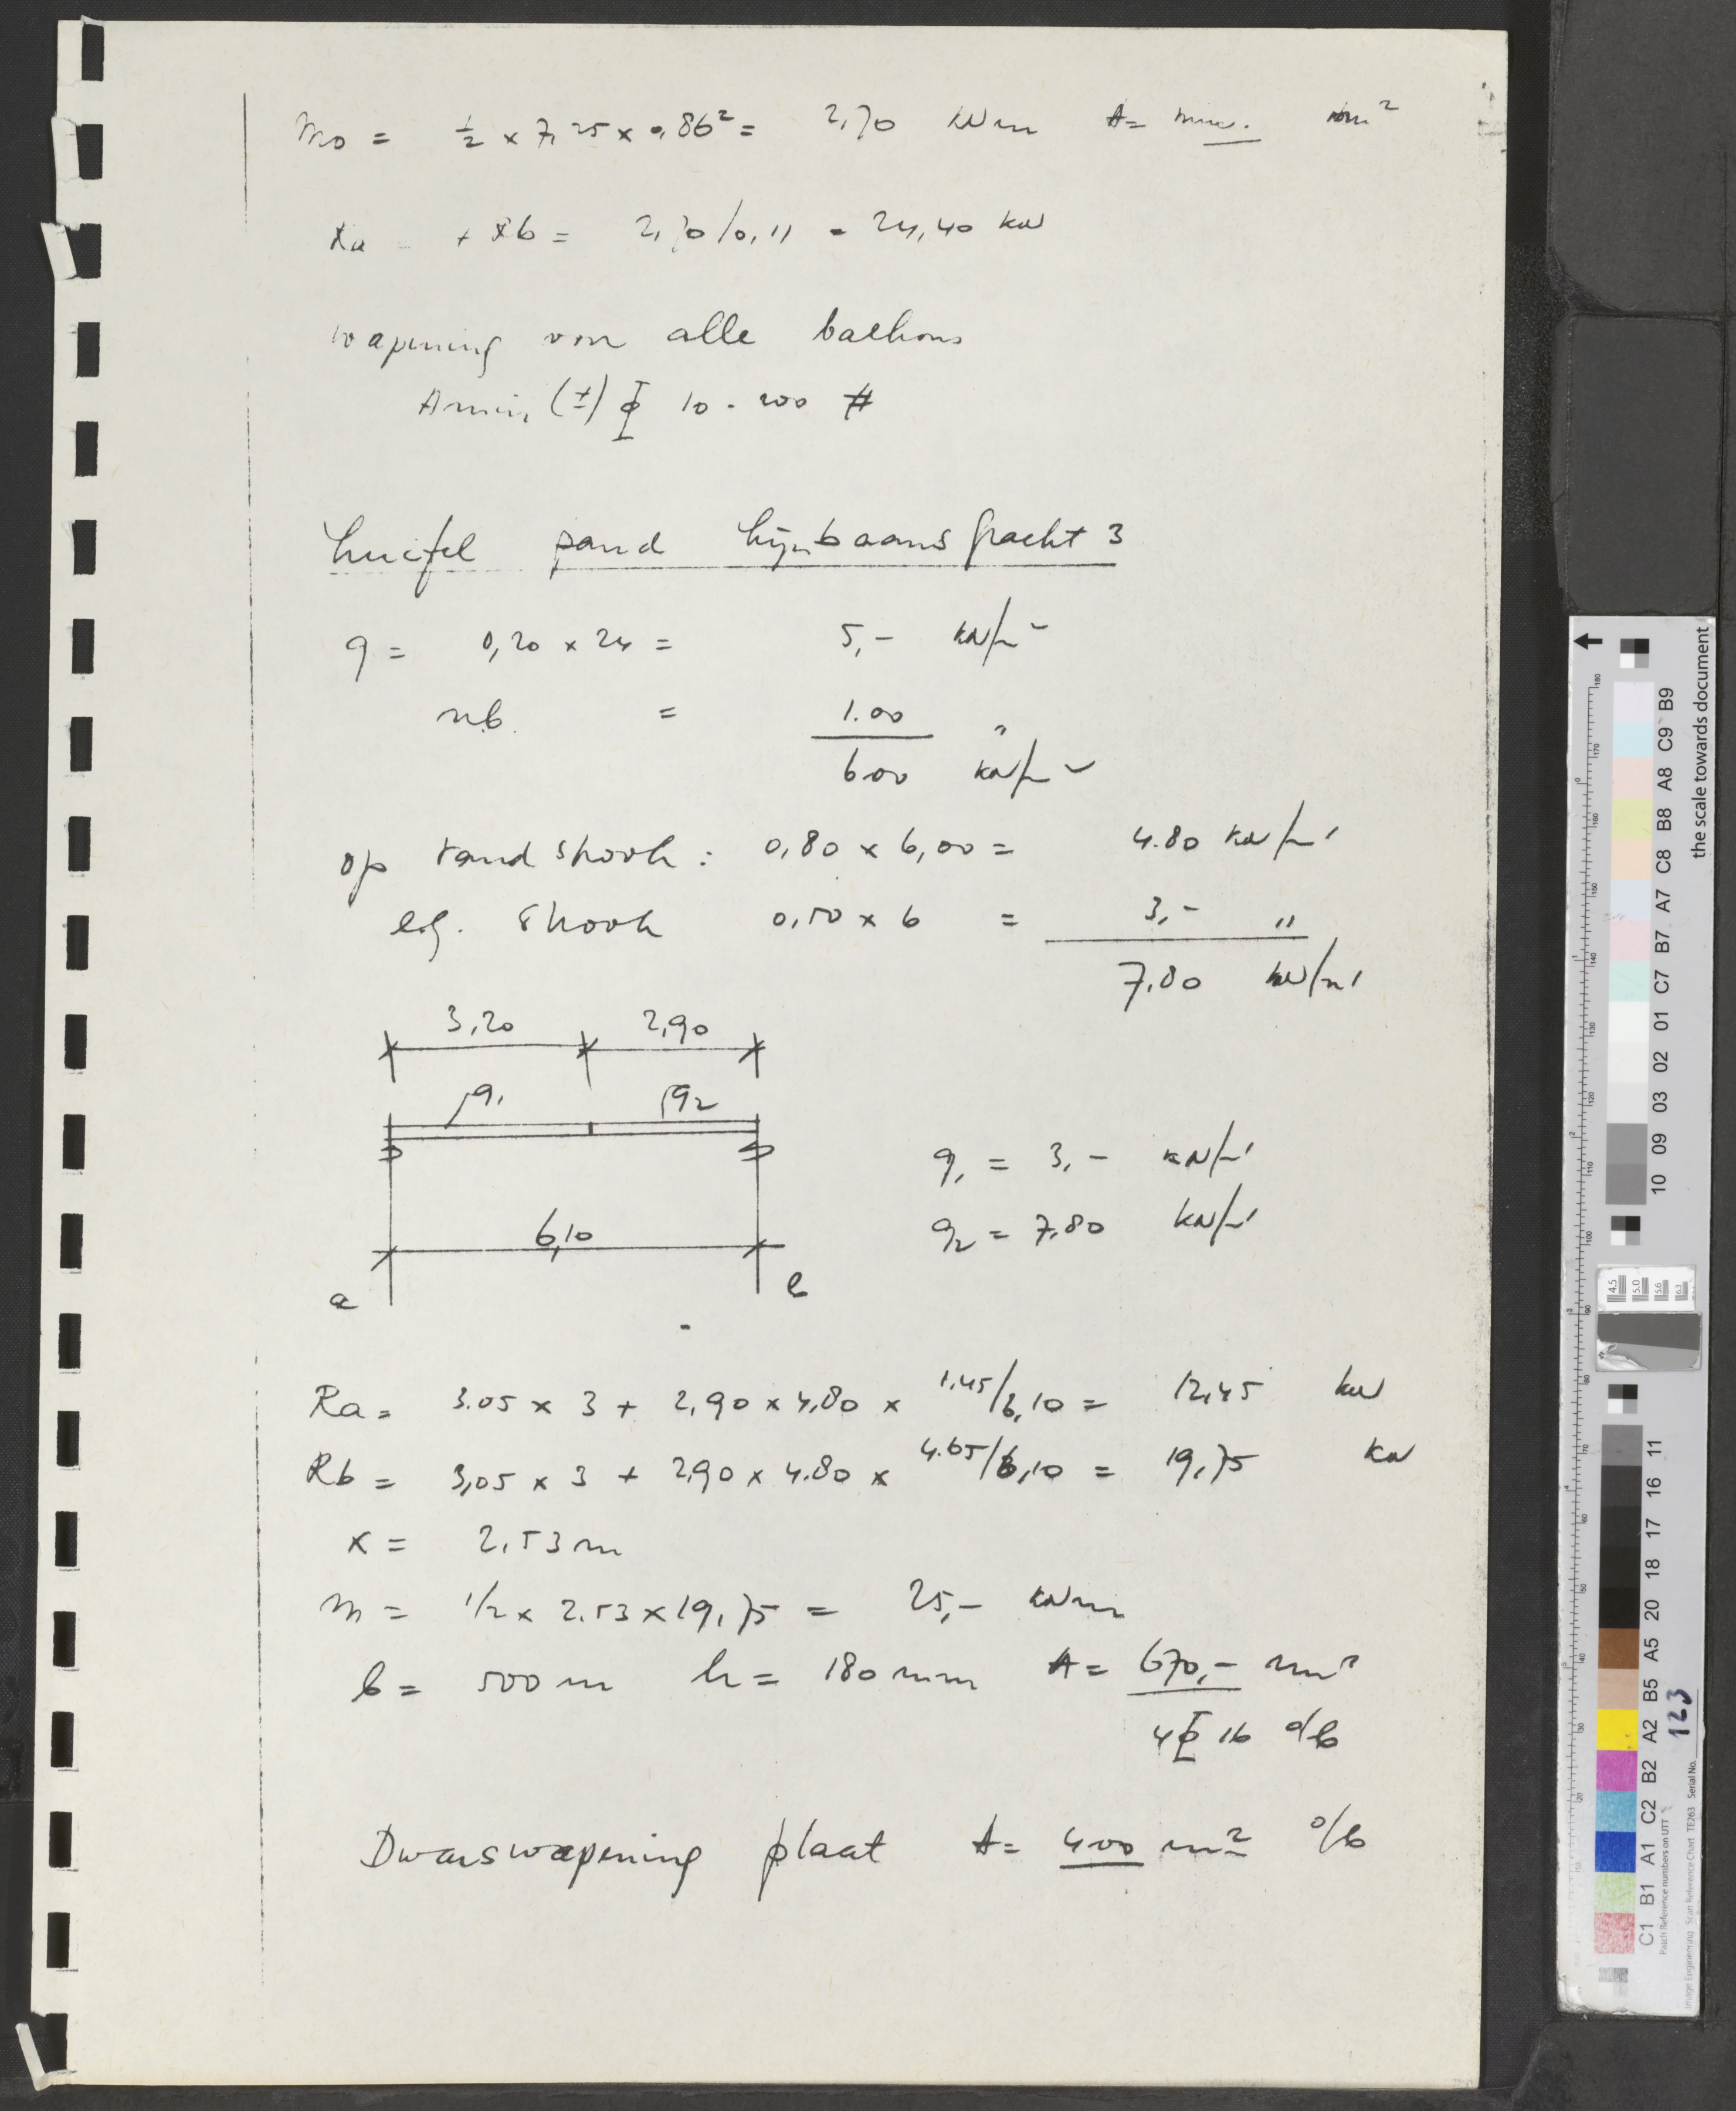 Mo = ½ x 7,25 x 0,86² = 2,70 kNm A = min. mm²
Ra = + Rb = 2,70/0,11 = 24,40 kN
wapening van alle balkons
Amin (±) ϕ 10 - 200 #
Luifel pand Lijnbaansgracht 3
q = 0,20 x 24 = 5,- kN/m²
nb. = 1.00 "
6.00 kN/m²
op randstrook : 0,80 x 6,00 = 4.80 kN/m'
e.g. strook 0,50 x 6 = 3,- "
7.80 kN/m'
3,20 2,90
q₁ q₂
q₁ = 3,- kN/m'
q₂ = 7,80 kN/m'
6,10
a b
Ra = 3.05 x 3 + 2,90 x 4,80 x 1,45/6,10 = 12,45 kN
Rb = 3,05 x 3 + 2,90 x 4.80 x 4.65/6,10 = 19,75 kN
x = 2,53 m
M = 1/2 x 2.53 x 19,75 = 25,- kNm
b = 500 m h = 180 mm A = 670,- mm²
4 ϕ 16 o/b
Dwarswapening plaat A = 400 m² o/b
the scale towards document
C1 B1 A1 C2 B2 A2 B5 A5 20 18 17 16 11 10 09 03 02 01 C7 B7 A7 C8 B8 A8 C9 B9
Patch Reference numbers on UTT
Image Engineering Scan Reference Chart TE263 Serial No. 123